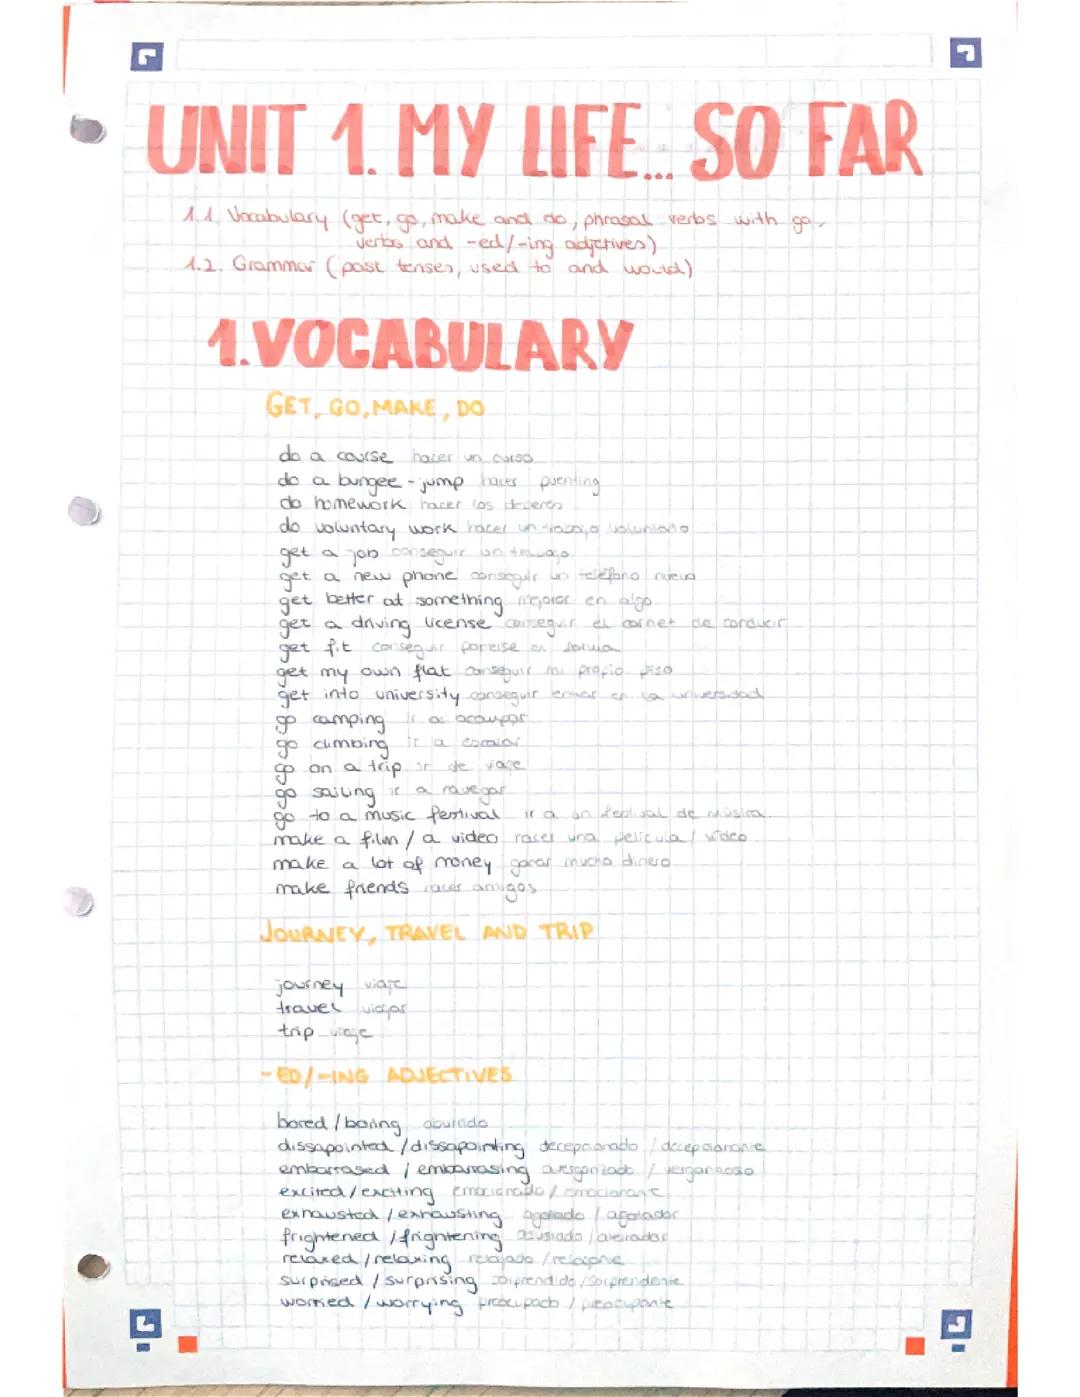 UNIT 1. MY LIFE... SO FAR
1.1. Vocabulary (get, go, make and do, phrasal verbs with go,
verbs and -ed/-ing adjetives)
1.2. Grammar (past tenses, used to and would)
1.VOCABULARY
GET, GO, MAKE, DO
do a course hacer un curso
do a bungee-jump hacer puenting
do homework hacer los deberes
do voluntary work hacer un trabajo voluntario
get a job conseguir un trabajo
get a new phone conseguir un teléfono nuevo
get better at something mejorar en algo
get a driving license conseguir el carnet de conducir
get fit conseguir ponerse en forma
get my own flat conseguir mi propio piso
get into university conseguir entrar en la universidad
go camping ir a acampar
go climbing ir a escalar
go on a trip ir de viaje
go sailing ir a navegar
go to a music festival ir a un festival de música
make a film / a video hacer una película / vídeo
make a lot of money ganar mucho dinero
make friends hacer amigos
JOURNEY, TRAVEL AND TRIP
journey viaje
travel viajar
trip viaje
-ED/-ING ADJECTIVES
bored / boring aburrido
dissapointed / dissapointing decepcionado / decepcionante
embarrased / embarrasing avergonzado / vergonzoso
excited / exciting emocionado / emocionante
exhausted / exhausting agotado / agotador
frightened / frightening asustado / aterrador
relaxed / relaxing relajado / relajante
surprised / surprising sorprendido / sorprendente
worried / worrying preocupado / preocupante